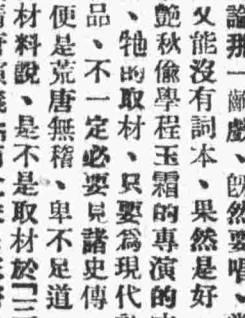 論那一齣戲、旣然要唱、
又能沒有詞本、果然是好
艷秋偷學程玉霜的專演的
、牠的取材、只要爲現代
品、不一定必要見諸史傳
便是荒唐無稽、卑不足道
材料說、是不是取材於「三